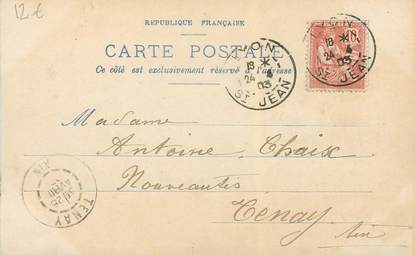 12 €
REPUBLIQUE FRANÇAISE
CARTE POSTALE
Ce côté est exclusivement réservé à l'adresse
LYON
18
24 4
03
ST JEAN
LYON
18
24 4
03
ST JEAN
Madame
Antoine Chaix
Nouveautés
Tenay
Ain
AIN
25
AVRIL
TENAY